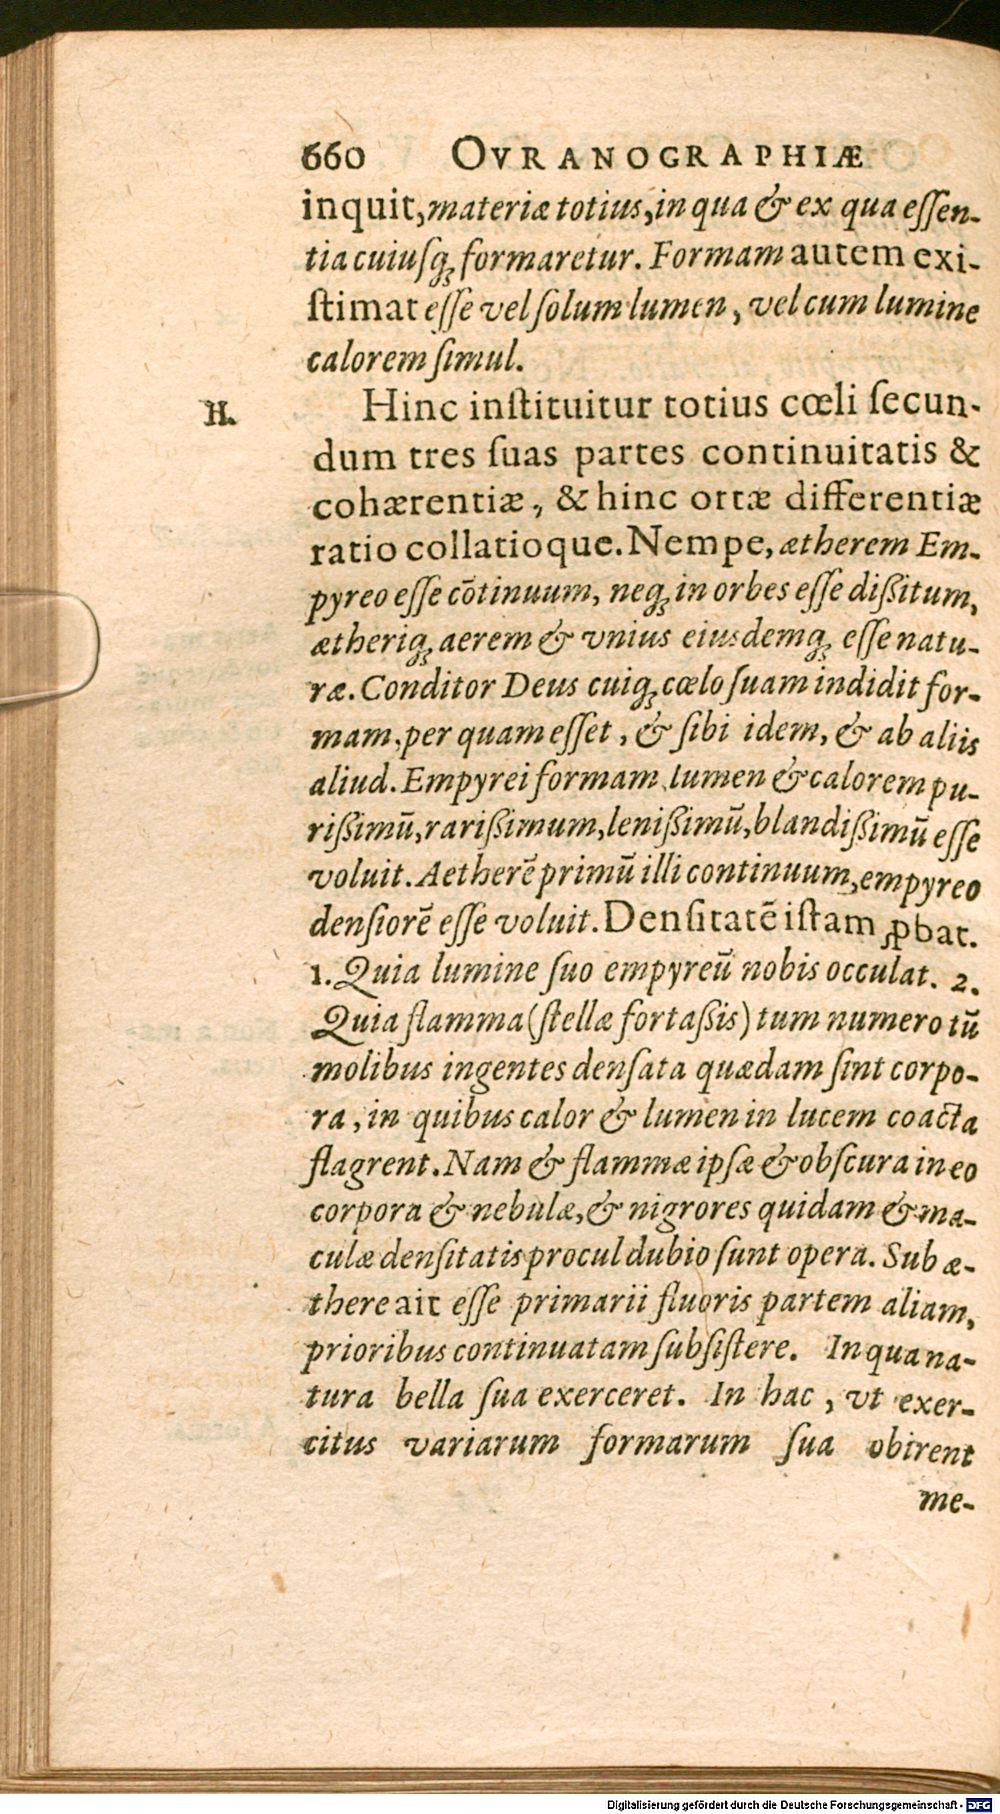 660 OVRANOGRAPHIÆ
inquit, materiæ totius, in qua & ex qua eſſen-
tia cuiuſq; formaretur. Formam autem exi-
ſtimat eſſe vel ſolum lumen, vel cum lumine
calorem ſimul.
H.
Hinc inſtituitur totius cœli ſecun-
dum tres ſuas partes continuitatis &
cohærentiæ, & hinc ortæ differentiæ
ratio collatioque. Nempe, ætherem Em-
pyreo eſſe cōtinuum, neq; in orbes eſſe dißitum,
ætheriq; aerem & vnius eiusdemq; eſſe natu-
ræ. Conditor Deus cuiq; cœlo ſuam indidit for-
mam, per quam eſſet, & ſibi idem, & ab aliis
aliud. Empyrei formam lumen & calorem pu-
rißimū, rarißimum, lenißimū, blandißimū eſſe
voluit. Aetherē primū illi continuum, empyreo
denſiorē eſſe voluit. Denſitatē iſtam ꝓbat.
1. Quia lumine ſuo empyreū nobis occulat. 2.
Quia flamma (ſtellæ fortaßis) tum numero tū
molibus ingentes denſata quædam ſint corpo-
ra, in quibus calor & lumen in lucem coacta
flagrent. Nam & flammæ ipſæ & obſcura in eo
corpora & nebulæ, & nigrores quidam & ma-
culæ denſitatis procul dubio ſunt opera. Sub æ-
there ait eſſe primarii fluoris partem aliam,
prioribus continuatam ſubſiſtere. In qua na-
tura bella ſua exerceret. In hac, vt exer-
citus variarum formarum ſua obirent
me-
Digitalisierung gefördert durch die Deutsche Forschungsgemeinschaft - DFG